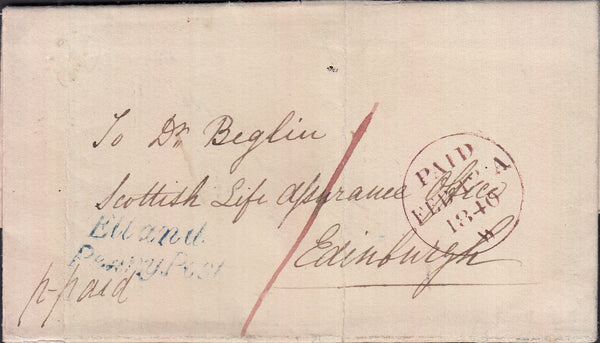 To Dr Beglin
Scottish Life Assurance Office
Edinburgh
p-paid
Elland
Penny Post
PAID
1840
A